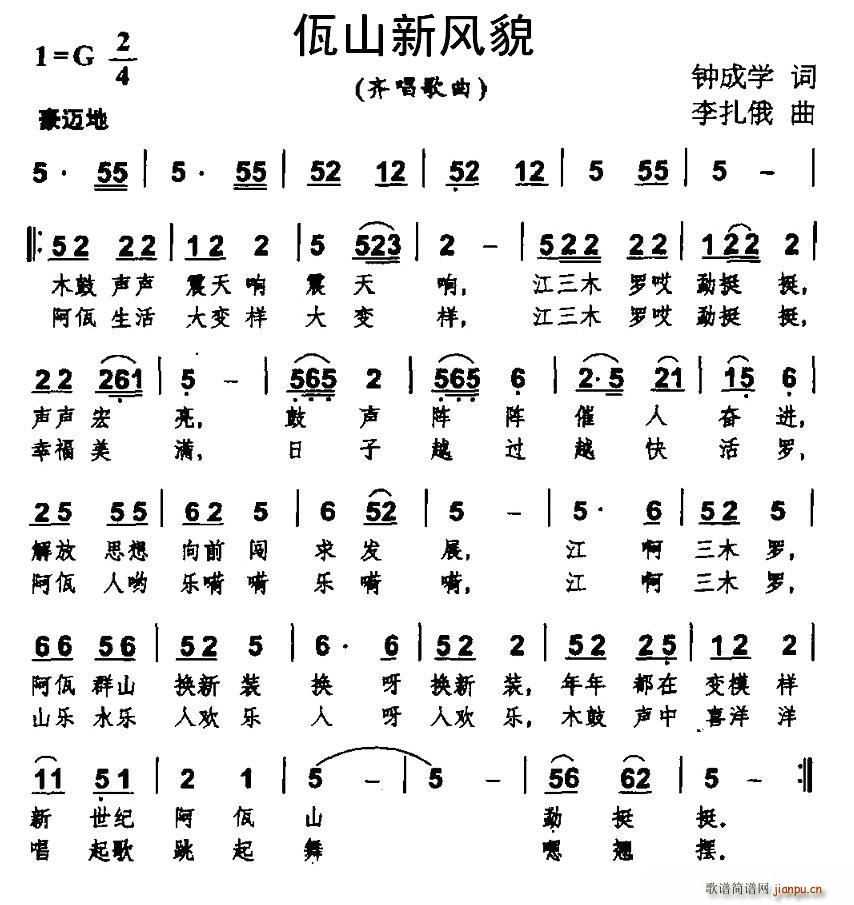 佤山新风貌
1=G 2/4
(齐唱歌曲)
钟成学 词
李扎俄 曲
豪迈地
5· 55 | 5· 55 | 52 12 | 52 12 | 5 55 | 5 - |
‖: 52 22 | 12 2 | 5 523 | 2 - | 522 22 | 122 2 |
木鼓 声声 震天响 震 天 响, 江三木 罗哎 勐挺 挺,
阿佤 生活 大变样 大 变 样, 江三木 罗哎 勐挺 挺,
22 261 | 5 - | 565 2 | 565 6 | 2·5 21 | 15 6 |
声声 宏 亮, 鼓 声 阵 阵 催 人 奋 进,
幸福 美 满, 日 子 越 过 越 快 活 罗,
25 55 | 62 5 | 6 52 | 5 - | 5· 6 | 52 5 |
解放 思想 向前 闯 求 发 展, 江 啊 三木 罗,
阿佤 人哟 乐嗬 嗬 乐 嗬 嗬, 江 啊 三木 罗,
66 56 | 52 5 | 6· 6 | 52 2 | 52 25 | 12 2 |
阿佤 群山 换新 装 换 呀 换新 装, 年年 都在 变模 样
山乐 水乐 人欢 乐 人 呀 人欢 乐, 木鼓 声中 喜洋 洋
11 51 | 2 1 | 5 - | 5 - | 56 62 | 5 - :‖
新 世纪 阿 佤 山 勐 挺 挺.
唱 起歌 跳 起 舞 嗯 翘 摆.
歌谱简谱网 jianpu.cn